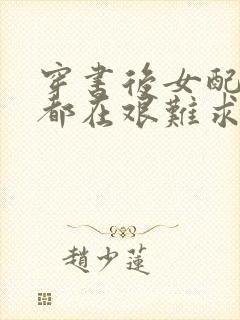 穿書後女配
都在艱難求
趙少蓮